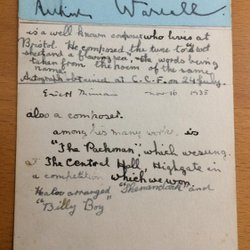 Arthur Warrell
is a well known composer who lives at
Bristol. He composed the tune to "I wot
shepherd a flaxen
taken from the poem of the same
name."
Autograph obtained at C.C.F. on 24 July.
Nov 16 1935
also a composer.
among his many works is
"The Packman" which we sung
at The Central Hall, Highgate in
a competition which we won.
He also arranged "Shenandoah" and
"Billy Boy"